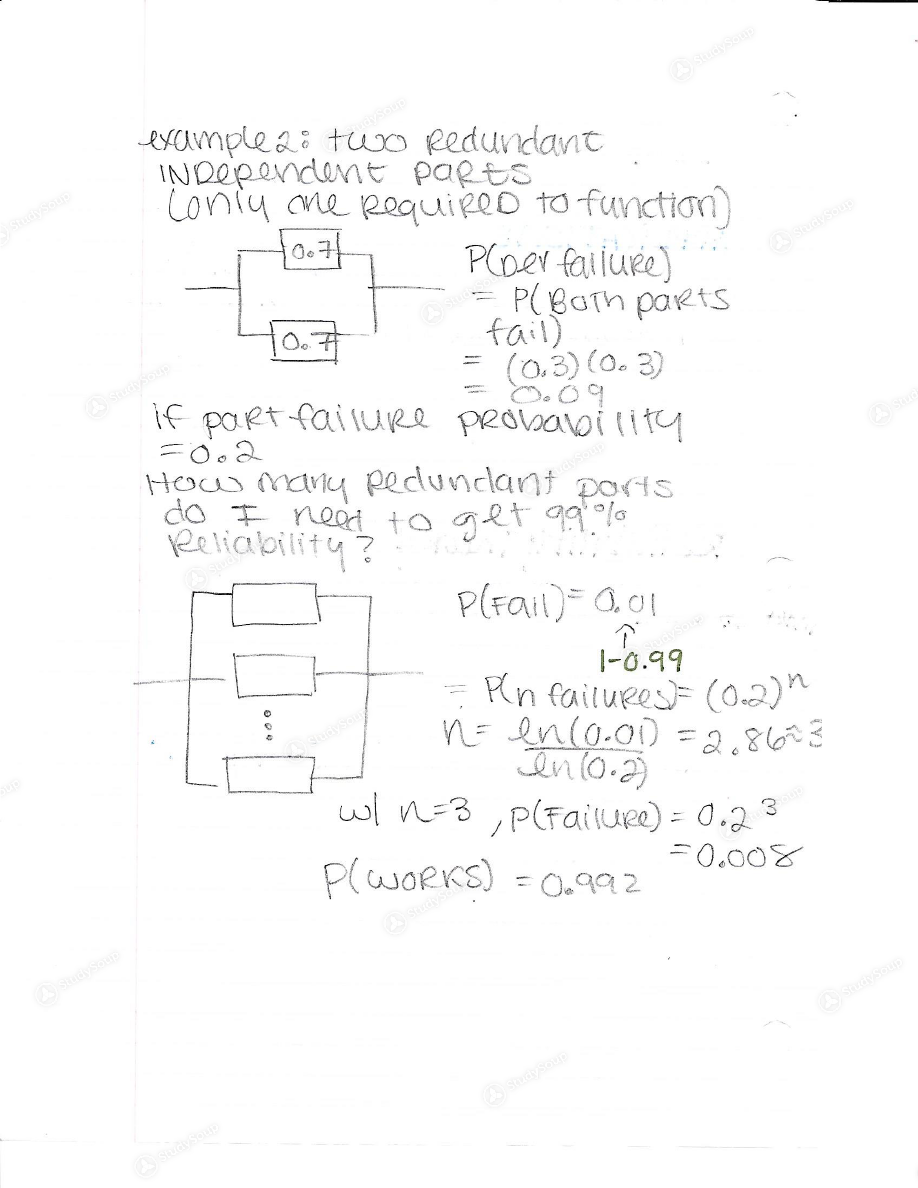 example 2: two Redundant
INDependent parts
(only one Required to function)
0.7
0.7
P(per failure)
= P(Both parts
fail)
= (0.3)(0.3)
= 0.09
if part failure probability
=0.2
How many redundant parts
do I need to get 99%
Reliability?
P(Fail)= 0.01
↑
1-0.99
= P(n failures)= (0.2)^n
n= ln(0.01) = 2.86≈3
ln(0.2)
w/ n=3, P(Failure) = 0.2^3
=0.008
P(works) = 0.992
StudySoup